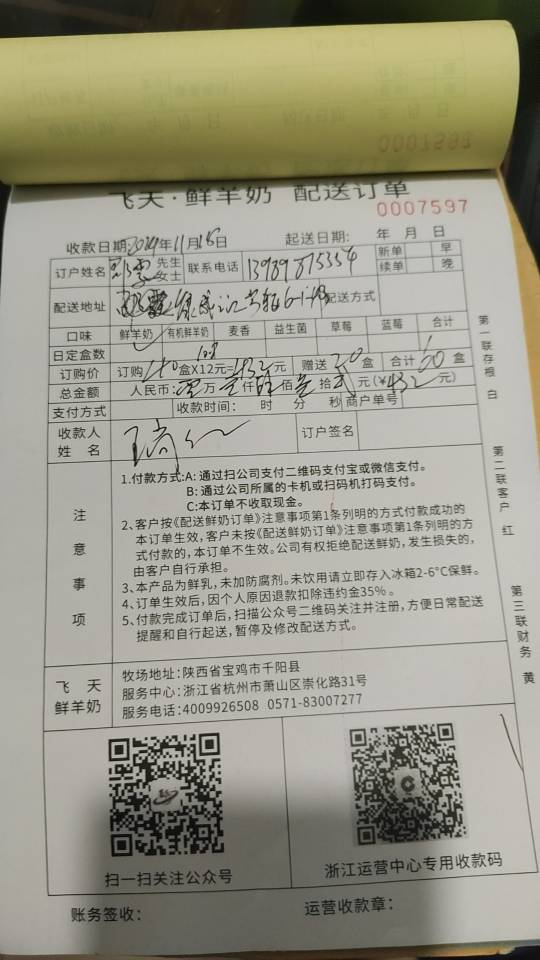 0007592
飞天·鲜羊奶 配送订单
0007597
收款日期: 年11月18日 起送日期: 年 月 日
订户姓名 先生 女士 联系电话 新单 早
续单 晚
配送地址 配送方式
口味 鲜羊奶 有机鲜羊奶 麦香 益生菌 草莓 蓝莓 合计
日定盒数 1
订购价 订购 40 盒X12元=432元 赠送20盒 合计60盒
总金额 人民币: 万 仟肆佰叁拾贰元(¥432元)
支付方式 收款时间: 时 分 秒 商户单号
收款人姓名 订户签名
注意事项
1.付款方式:A: 通过扫公司支付二维码支付宝或微信支付。
B: 通过公司所属的卡机或扫码机打码支付。
C:本订单不收取现金。
2、客户按《配送鲜奶订单》注意事项第1条列明的方式付款成功的
本订单生效，客户未按《配送鲜奶订单》注意事项第1条列明的方
式付款的，本订单不生效。公司有权拒绝配送鲜奶，发生损失的，
由客户自行承担。
3、本产品为鲜乳，未加防腐剂。未饮用请立即存入冰箱2-6°C保鲜。
4、订单生效后，因个人原因退款扣除违约金35%。
5、付款完成订单后，扫描公众号二维码关注并注册，方便日常配送
提醒和自行起送，暂停及修改配送方式。
飞天鲜羊奶
牧场地址:陕西省宝鸡市千阳县
服务中心:浙江省杭州市萧山区崇化路31号
服务电话:4009926508 0571-83007277
扫一扫关注公众号
浙江运营中心专用收款码
账务签收:
运营收款章:
第一联存根 白
第二联客户 红
第三联财务 黄